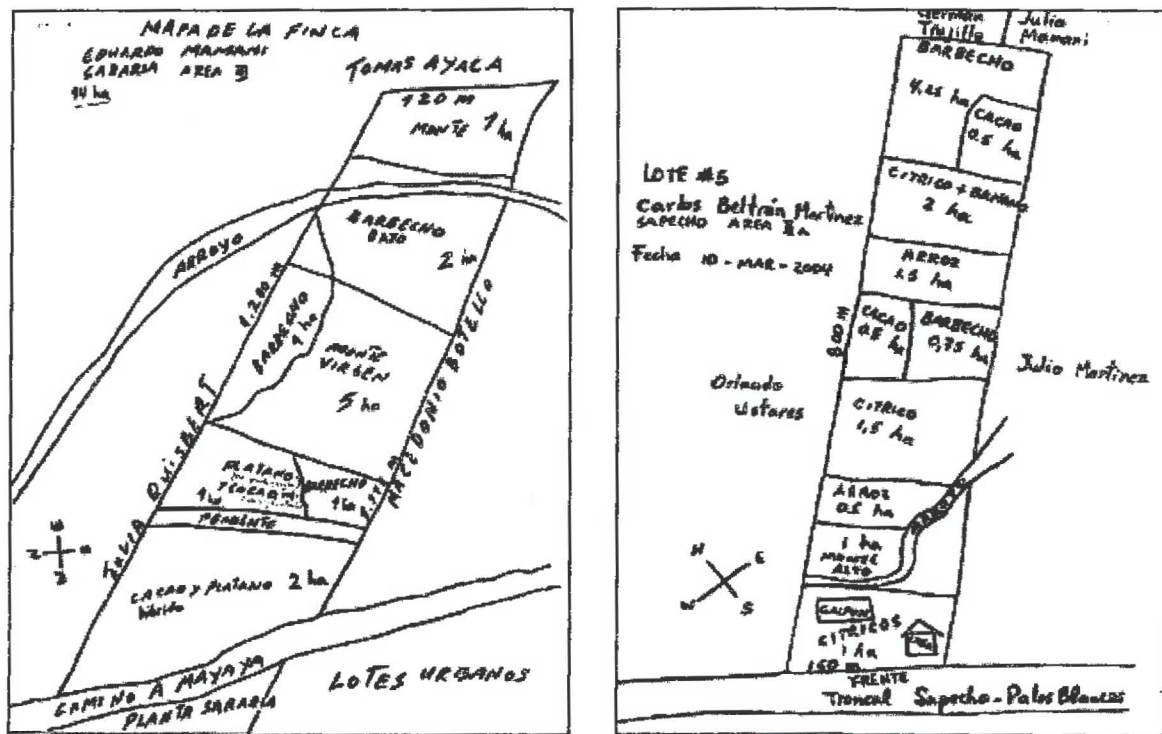 MAPA DE LA FINCA
EDUARDO MAMANI
SABARIA AREA III
14 ha
TOMAS AYACA
120 m
MONTE 1 ha
ARROYO
BARBECHO
BAJO
2 ha
1.280 m
BARBECHO
1 ha
MONTE
VIRGEN
5 ha
QUISBERT
MACEDONIO BOTELLO
PLATANO
1 ha
BARBECHO
1 ha
PENDIENTE
CACAO Y PLATANO
híbrido
2 ha
CAMINO A MAYAYA
PLANTA SABARIA
LOTES URBANOS
German
Trujillo
Julio
Mamani
BARBECHO
4,25 ha
CACAO
0.5 ha
LOTE #5
Carlos Beltrán Martinez
SAPECHO AREA IIa
Fecha 10 - MAR - 2004
CITRICO + BANANO
2 ha
ARROZ
1.5 ha
CACAO
0.5 ha
BARBECHO
0,75 ha
800 m
Orlando
Ustares
Julio Martinez
CITRICO
1,5 ha
ARROZ
0.5 ha
1 ha
MONTE
ALTO
N
E
W
S
GALPON
CITRICOS
1 ha
CASA
150 m
FRENTE
Troncal Sapecho - Palos Blancos